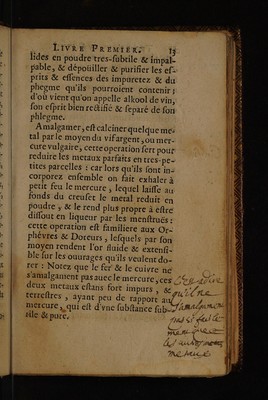 LIVRE PREMIER. 13
lides en poudre tres-subtile & impal-
pable, & dépoüiller & purifier les es-
prits & essences des impuretez & du
phegme qu'ils pourroient contenir:
d'où vient qu'on appelle alkool de vin,
son esprit bien rectifié & separé de son
phlegme.
Amalgamer, est calciner quelque me-
tal par le moyen du vif argent, ou mer-
cure vulgaire, cette operation sert pour
reduire les metaux parfaits en tres-pe-
tites parcelles: car lors qu'ils sont in-
corporez ensemble on fait exhaler à
petit feu le mercure, lequel laisse au
fonds du creuset le metal reduit en
poudre, & le rend plus propre à estre
dissout en liqueur par les menstruës:
cette operation est familiere aux Or-
phévres & Doreurs, lesquels par son
moyen rendent l'or fluide & extensi-
ble sur les ouurages qu'ils veulent do-
rer: Notez que le fer & le cuivre ne
s'amalgament pas auec le mercure, ces
deux metaux estans fort impurs, &
terrestres, ayant peu de rapport au
mercure, qui est d'vne substance sub-
tile & pure.
qu'il ne